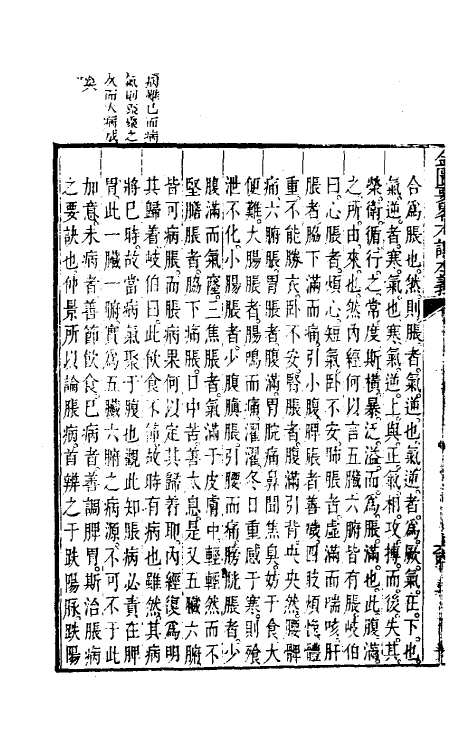 合爲脹也然則脹者氣逆也氣逆者爲厥氣在下也
氣逆者寒氣也寒氣逆上與正氣相攻搏而後失其
榮衛循行之常度斯橫暴泛溢而爲脹滿也此腹滿
之所由來也然內經何以言五臟六腑皆有脹岐伯
曰心脹者煩心短氣臥不安肺脹者虛滿而喘咳肝
脹者脇下滿而痛引小腹脾脹者善噦四肢煩悗體
重不能勝衣臥不安腎脹者腹滿引背央央然腰髀
痛六腑脹胃脹者腹滿胃脘痛鼻聞焦臭妨于食大
便難大腸脹者腸鳴而痛濯濯冬日重感于寒則飱
泄不化小腸脹者少腹䐜脹引腰而痛膀胱脹者少
腹滿而氣癃三焦脹者氣滿于皮膚中輕輕然而不
堅膽脹者脇下痛脹口中苦善太息是又五臟六腑
皆可病脹而脹病果何以定其歸着耶內經復爲明
其歸着岐伯曰此飲食不節故時有病也雖然其病
將已時故當病氣聚于腹也觀此知脹病必責在脾
胃此一臟一腑實爲五臟六腑之病源不可不于此
加意未病者善節飲食已病者善調脾胃斯治脹病
之要訣也仲景所以論脹病首辨之于趺陽脉趺陽
病雖已而病
氣則聚藥之
久而大病成
矣